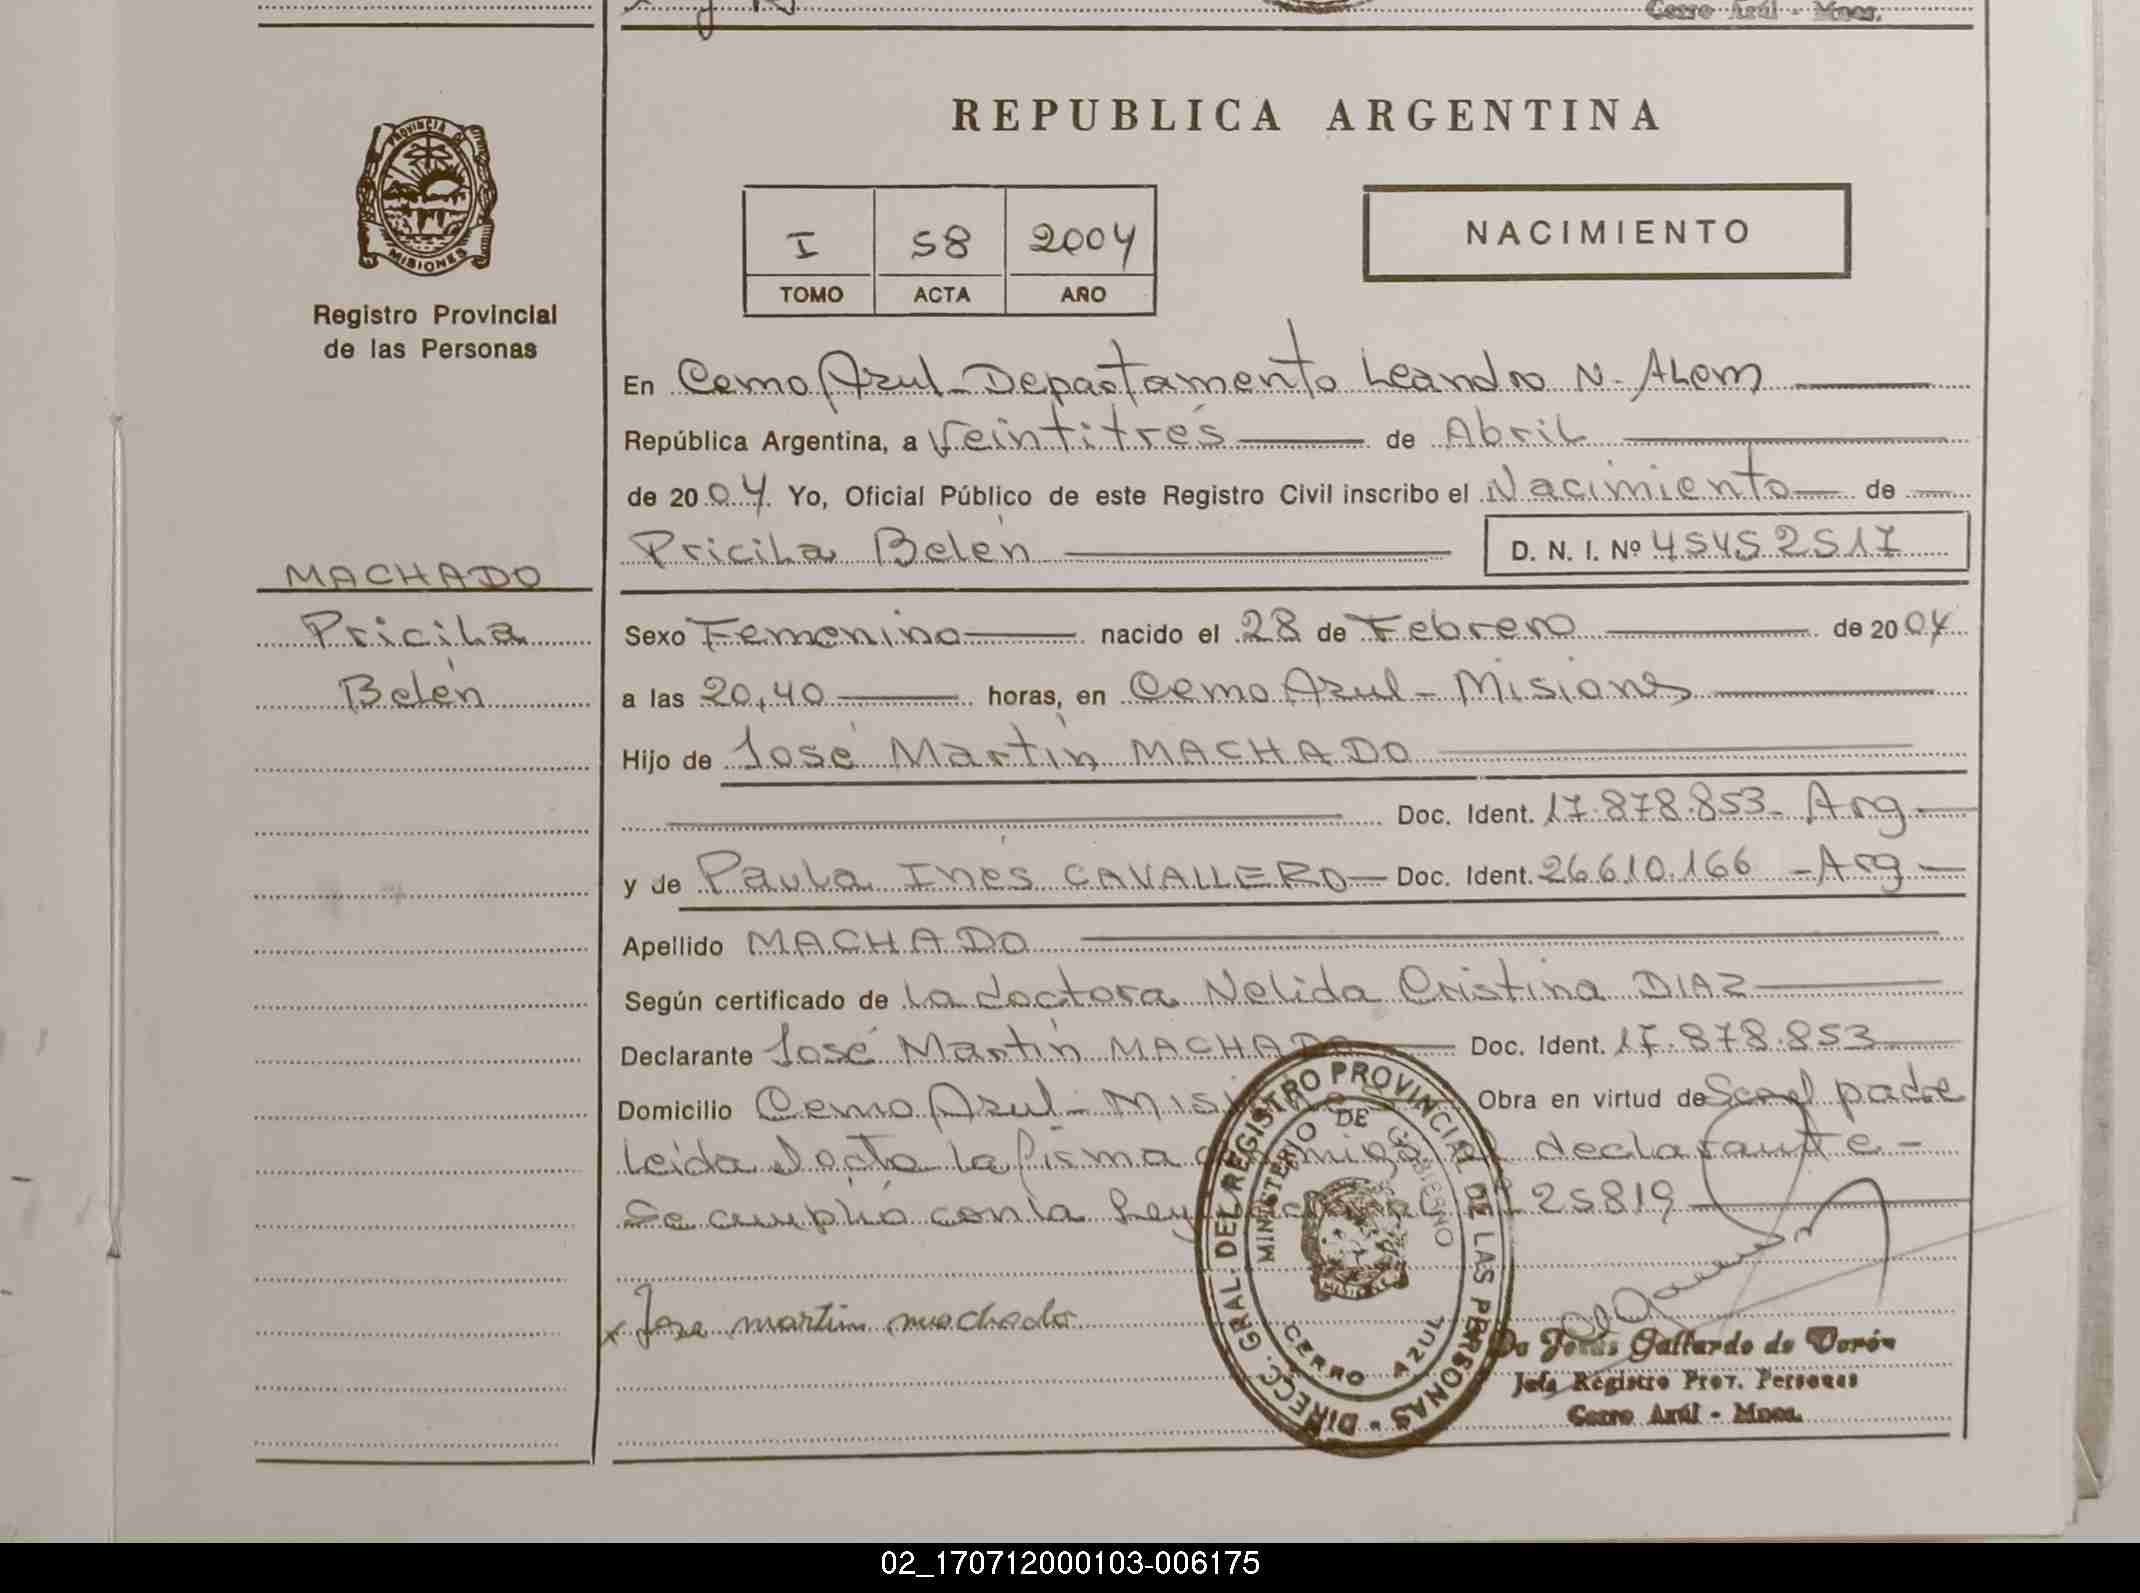 Cerro Azúl - Mnes.
PROVINCIA DE
MISIONES
Registro Provincial
de las Personas
MACHADO
Pricila
Belén
REPUBLICA ARGENTINA
I 58 2004
TOMO ACTA AÑO
NACIMIENTO
En Cerro Azul - Departamento Leandro N. Alem
República Argentina, a Veintitrés de Abril
de 2004 Yo, Oficial Público de este Registro Civil inscribo el Nacimiento de
Pricila Belén D. N. I. Nº 45452517
Sexo Femenino nacido el 28 de Febrero de 2004
a las 20,40 horas, en Cerro Azul - Misiones
Hijo de José Martín MACHADO
Doc. Ident. 17.878.853 - Arg
y de Paula Inés CAVALLERO Doc. Ident. 26.610.166 - Arg
Apellido MACHADO
Según certificado de la doctora Nelida Cristina DIAZ
Declarante José Martín MACHADO Doc. Ident. 17.878.853
Domicilio Cerro Azul - Misiones Obra en virtud de Ser el padre
Leida el acta la firma conmigo el declarante -
Se cumplió con la Ley Nacional Nº 25819
x Jose martin machado
DIRECC. GRAL. DEL REGISTRO PROVINCIAL DE LAS PERSONAS
MINISTERIO DE GOBIERNO
CERRO AZUL
Gallardo de Verón
Jefa Registro Prov. Personas
Cerro Azúl - Mnes.
02_170712000103-006175